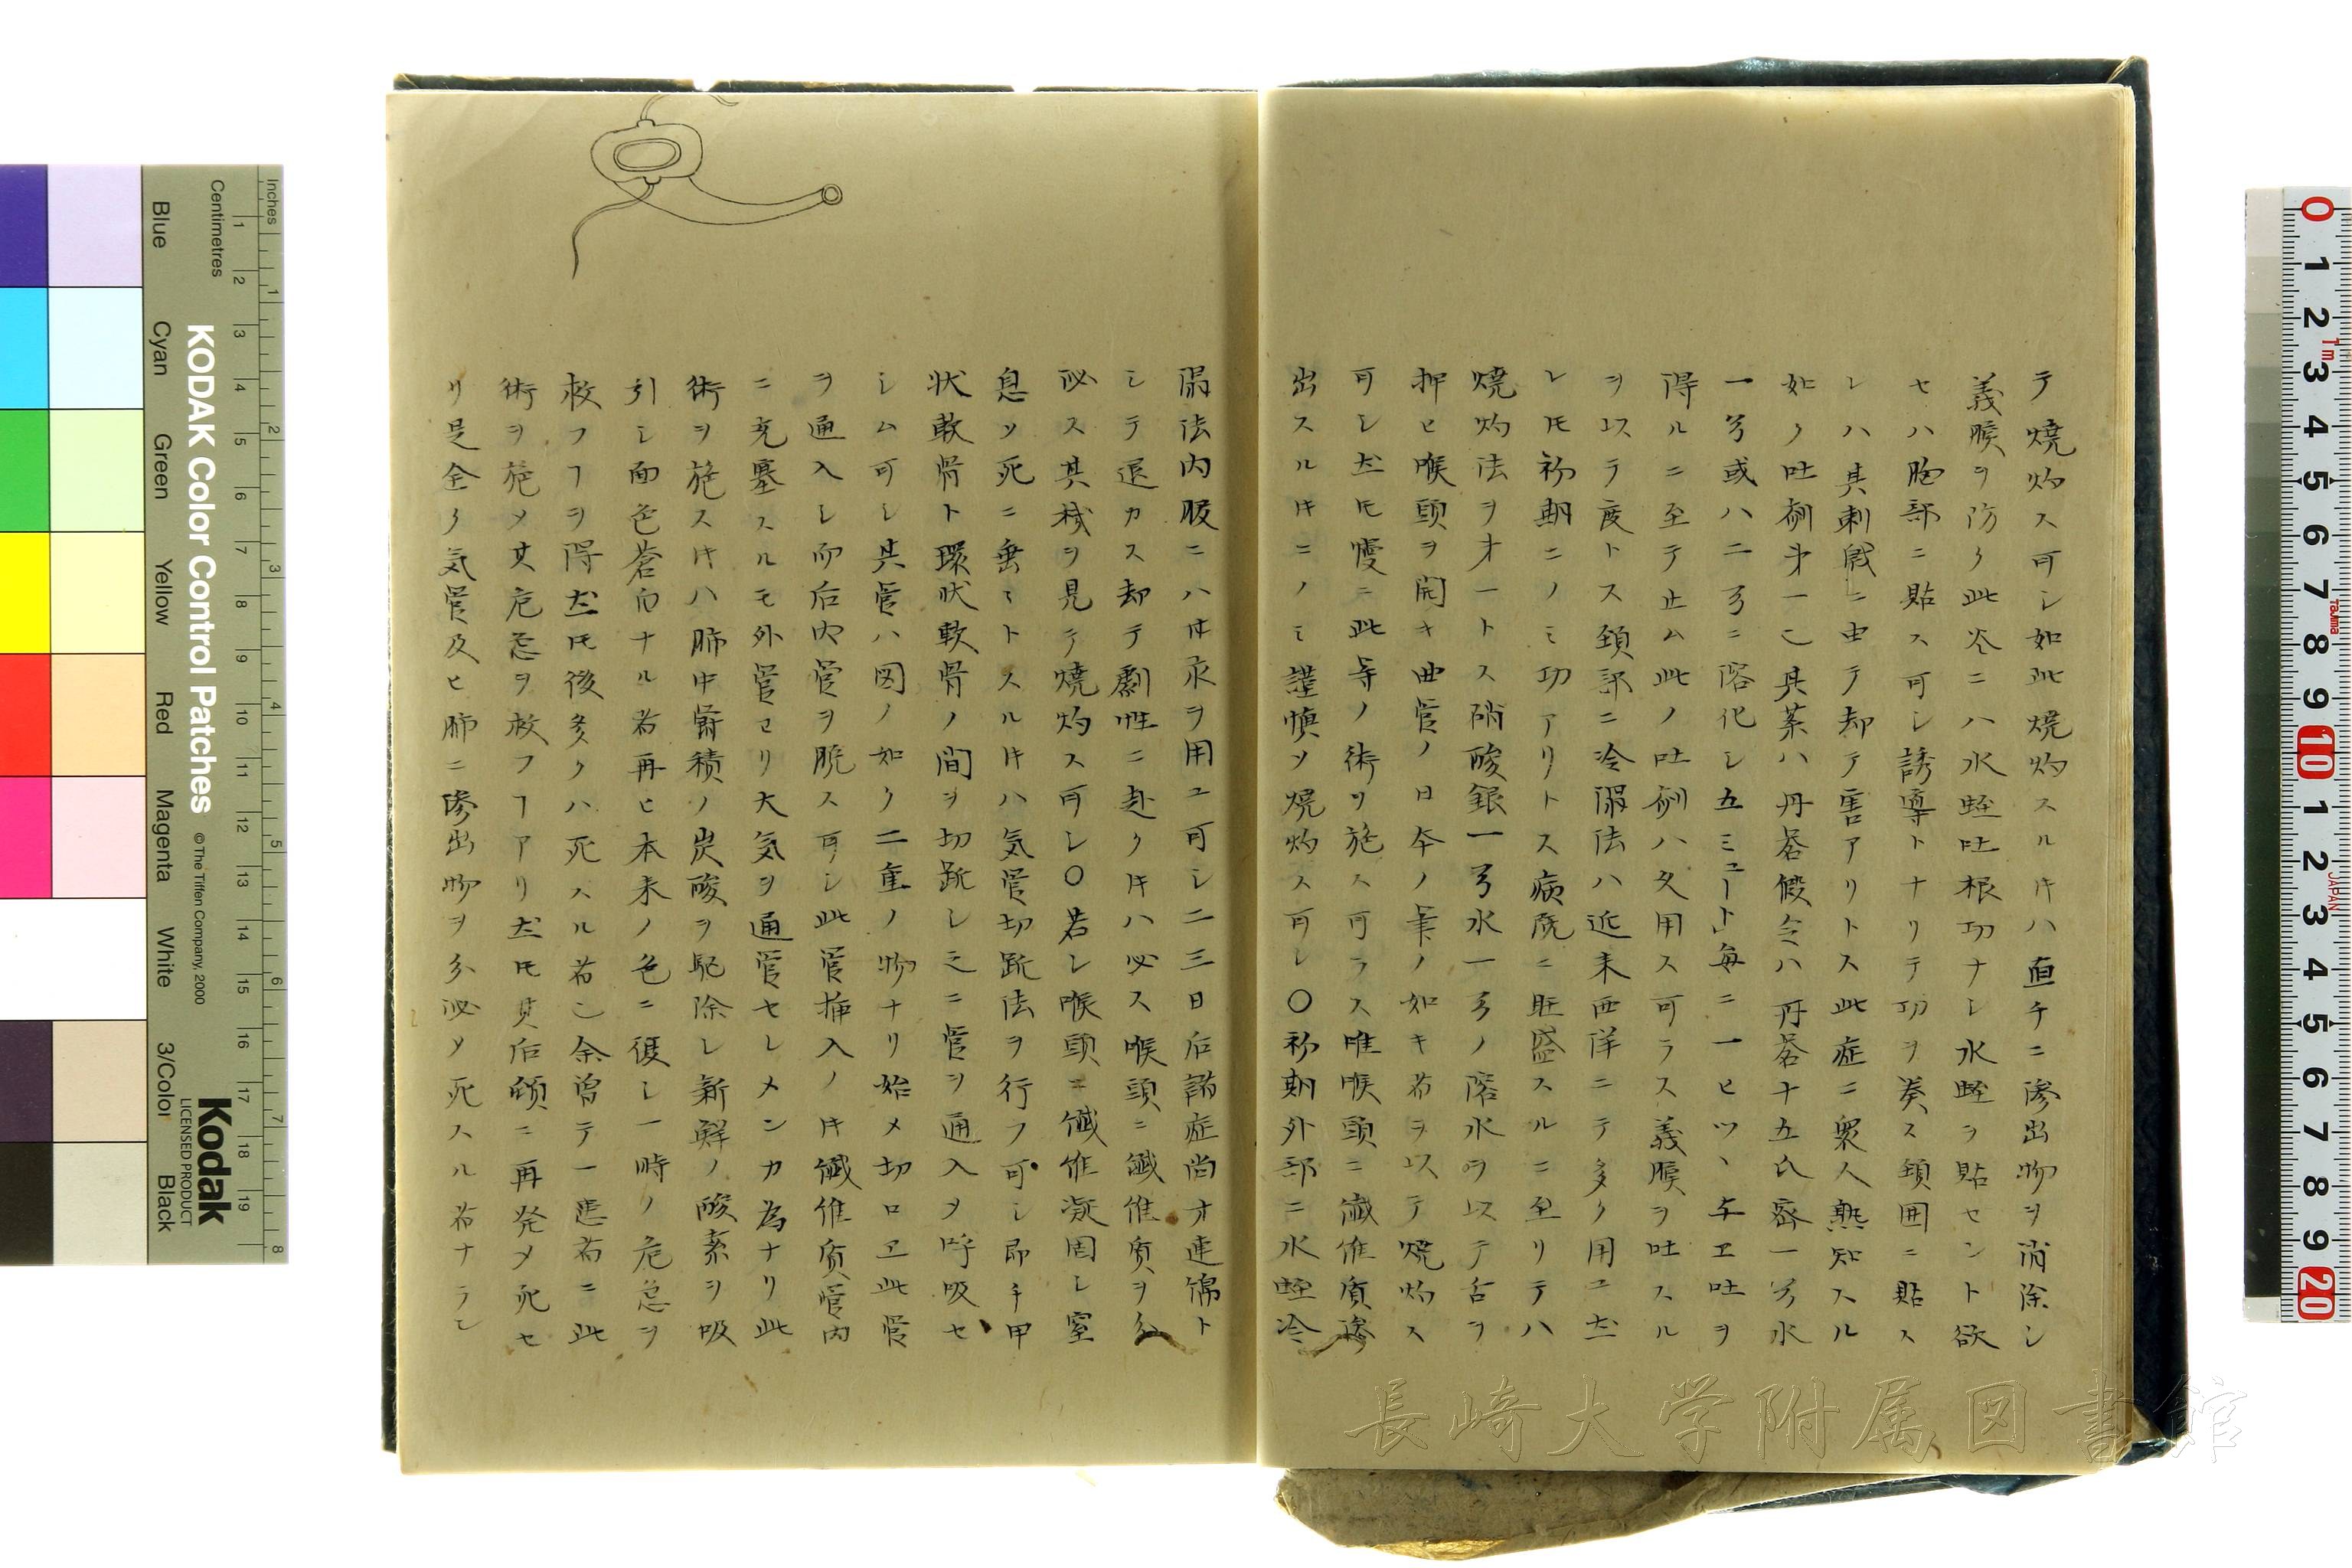 テ燒灼ス可シ如此燒灼スル片ハ直チニ滲出物ヲ消除シ
義膜ヲ防ク此炎ニハ水蛭吐根功ナシ水蛭ヲ貼セント欲
セハ胸部ニ貼ス可シ誘導トナリテ功ヲ奏ス頸囲ニ貼ス
レハ其刺戟ニ由テ却テ害アリトス此症ニ衆人熟知スル
如ク吐剤才一也其薬ハ丹礬假令ハ丹礬十五氏齊一弓水
一弓或ハ二弓ニ溶化シ五ミニュート」毎ニ一ヒツヽ与エ吐ヲ
得ルニ至テ止ム此ノ吐剤ハ久用ス可ラス義膜ヲ吐スル
ヲ以テ度トス頚部ニ冷溻法ハ近来西洋ニテ多ク用ユ𪜈
レ𪜈初期ニノミ功アリトス病既ニ旺盛スルニ至リテハ
燒灼法ヲ才一トス硝酸銀一弓水一弓ノ溶水ヲ以テ舌ヲ
押ヒ喉頭ヲ開キ曲管ノ日本ノ筆ノ如キ者ヲ以テ燒灼ス
可シ𪜈慢ニ此等ノ術ヲ施ス可ラス唯喉頭ニ纎維質滲
出スル片ニノミ謹慎メ燒灼ス可シ〇初期外部ニ水蛭冷
溻法内服ニハ甘汞ヲ用ユ可シ二三日后諸症尚ホ連綿ト
シテ退カス却テ劇性ニ赴ク片ハ必ス喉頭ニ纎維質ヲ分
泌ス其穢ヲ見テ燒灼ス可シ〇若シ喉頭ニ纎維凝固シ窒
息ソ死ニ垂ミトスル片ハ気管切䟽法ヲ行フ可シ即チ甲
状軟骨ト環状軟骨ノ間ヲ切䟽シ之ニ管ヲ通入メ呼吸セ
シム可シ其管ハ図ノ如ク二重ノ物ナリ始メ切ロエ此管
ヲ通入シ而后内管ヲ脱ス可シ此管挿入ノ片纎維質管内
ニ充塞スルモ外管ヨリ大気ヲ通管セシメンカ為ナリ此
術ヲ施ス片ハ肺中欝積ノ炭酸ヲ駆除シ新鮮ノ酸素ヲ吸
引シ面色蒼白ナル者再ヒ本来ノ色ニ復シ一時ノ危急ヲ
救フヿヲ得𪜈後多クハ死スル者也余曽テ一患者ニ此
術ヲ施メ其危急ヲ救フヿアリ𪜈其后頓ニ再発メ死セ
リ是全ク気管及ヒ肺ニ滲出物ヲ分泌メ死スル者ナラン
長崎大学附属図書館
KODAK Color Control Patches © The Tiffen Company, 2000
Kodak LICENSED PRODUCT
Inches
Centimetres
Blue Cyan Green Yellow Red Magenta White 3/Color Black